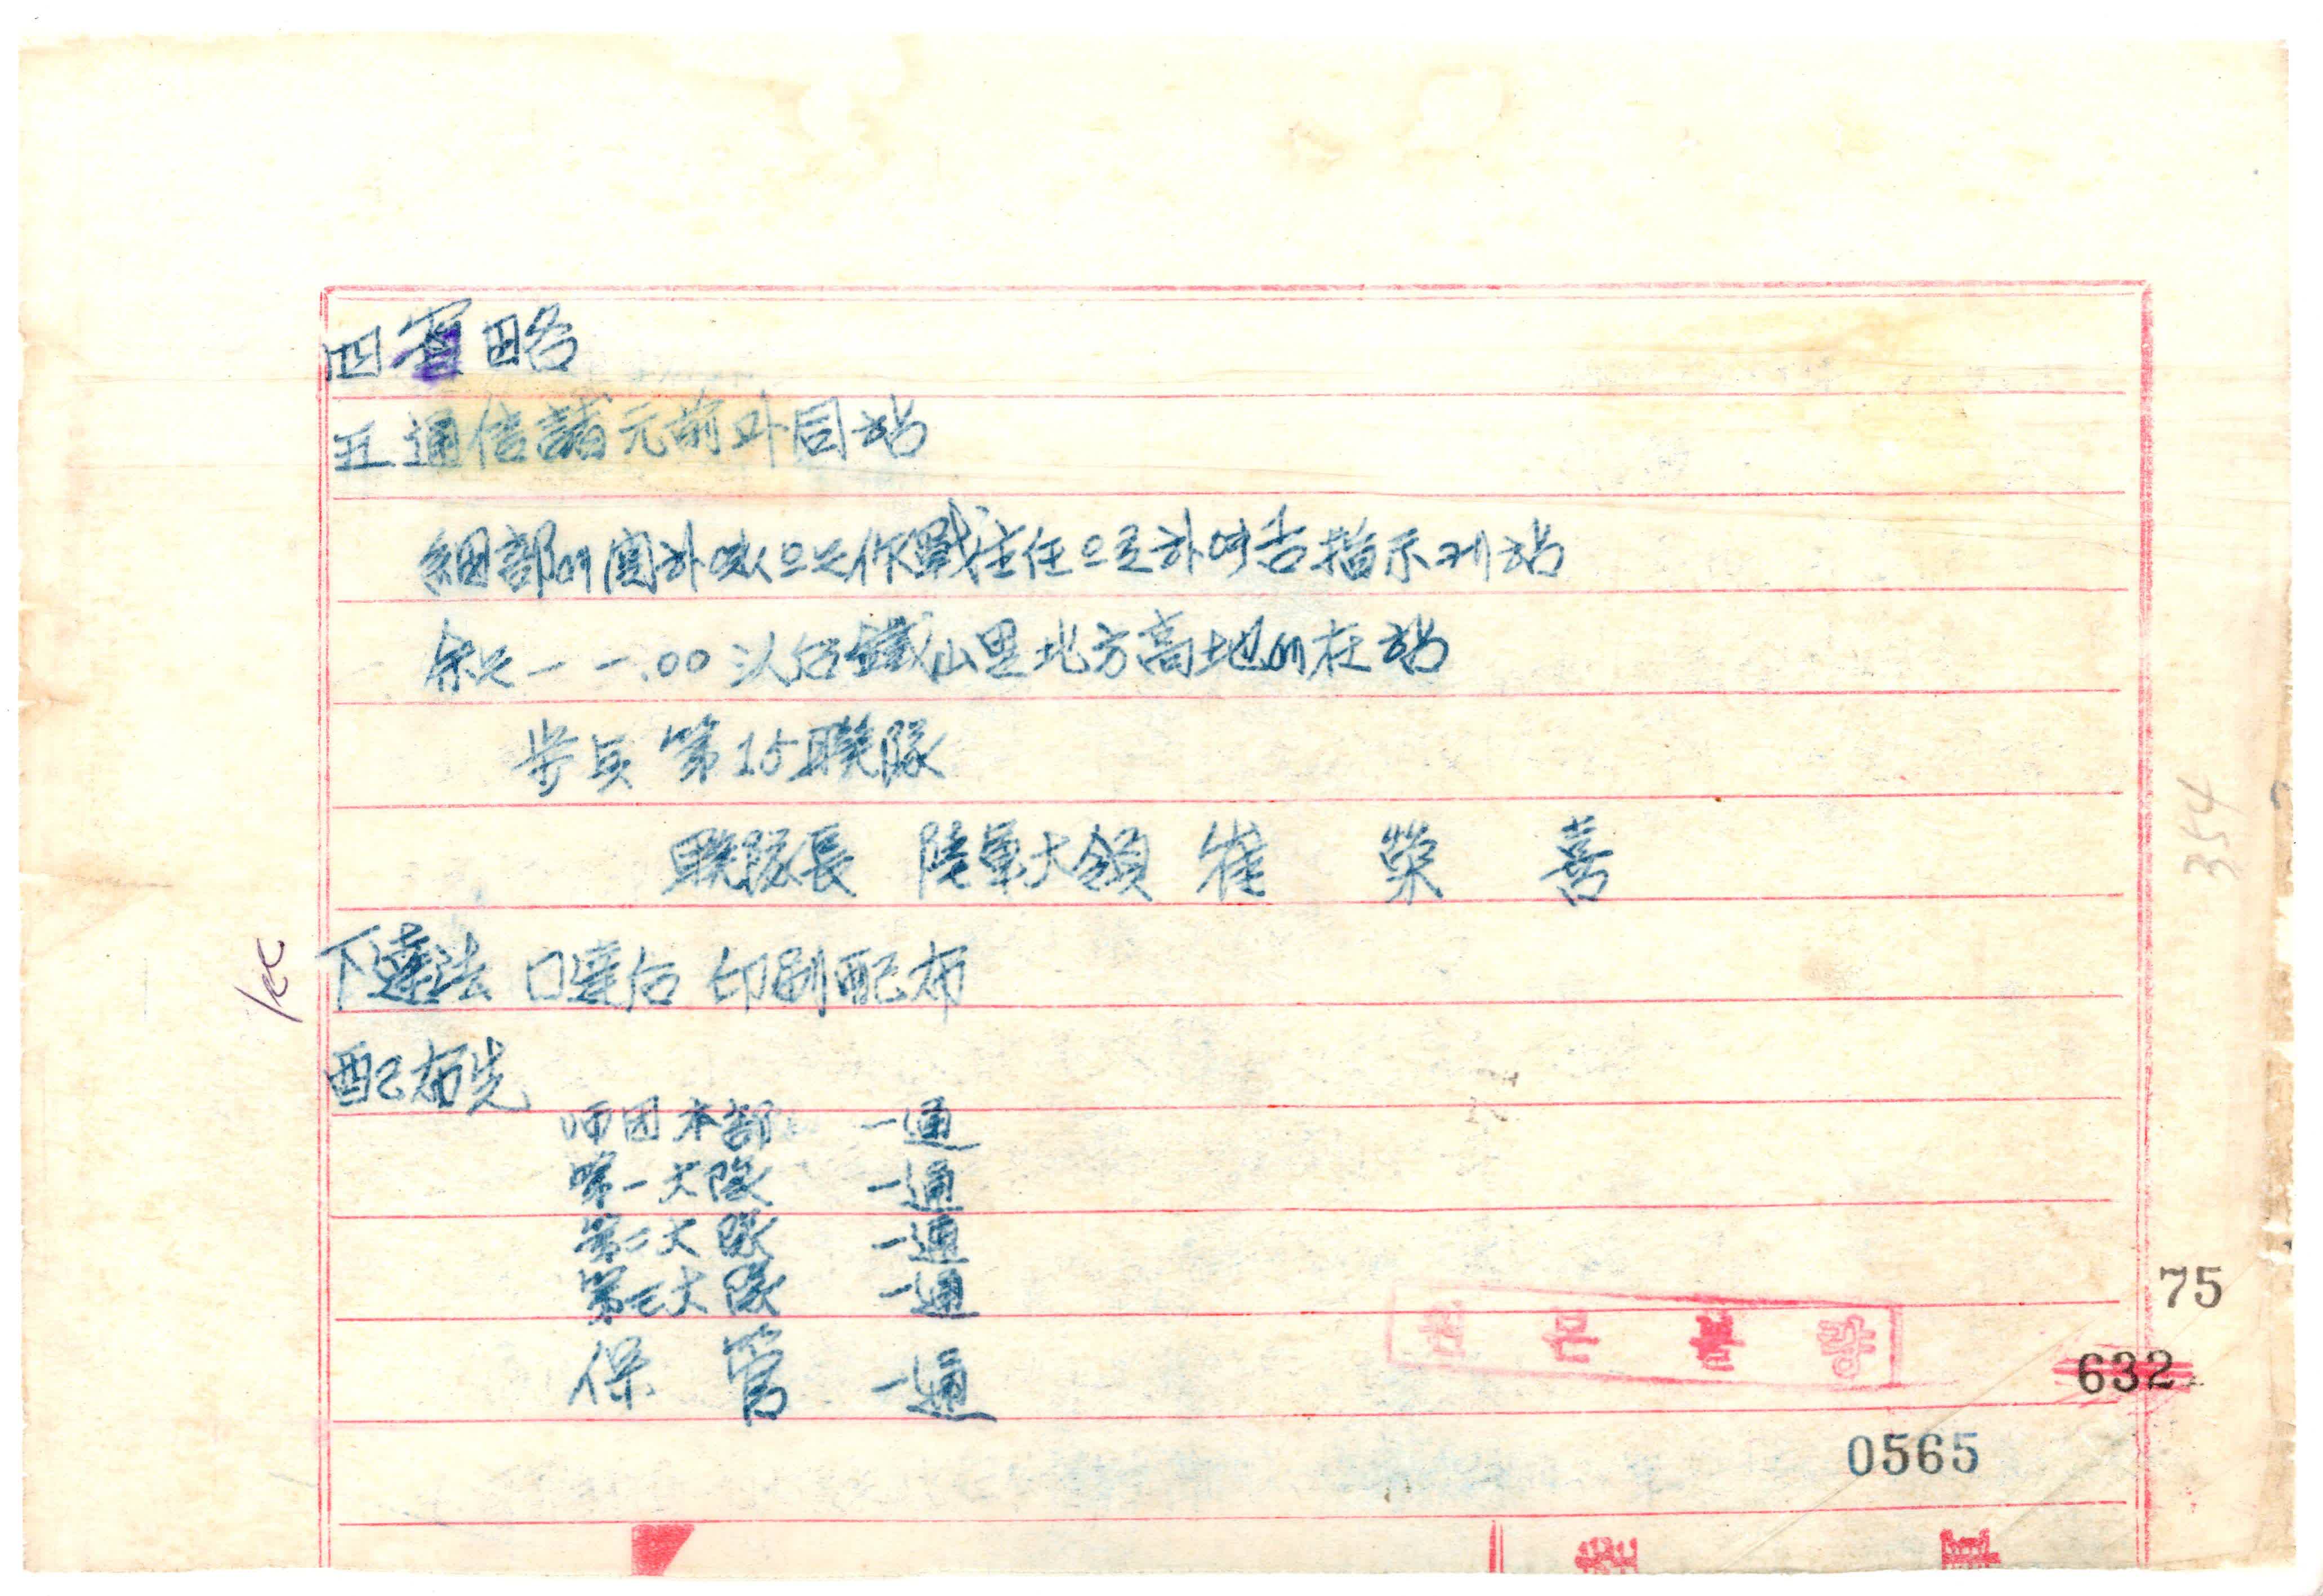 四 省略
五 通信諸元前과同함
細部에 関하야서으는 作戦主任으로하여금 指示케함
余는 一一.00 以后 鐵山里北方高地에 在함
步兵 第15聯隊
聯隊長 陸軍大領 崔 榮 喜
下達法 口達后 印刷配布
配布先
师団本部 一通
第一大隊 一通
第二大隊 一通
第三大隊 一通
保 管 一通
354
75
원본불량
632
0565